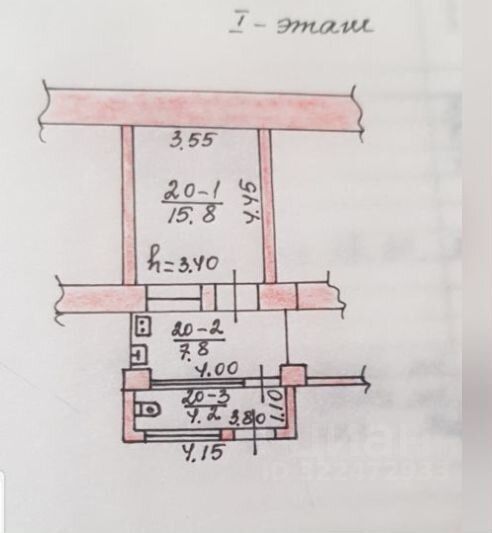 I - этаж
3.55
20-1
15.8
4.45
h=3.40
20-2
7.8
4.00
20-3
4.2
3.80
1.10
4.15